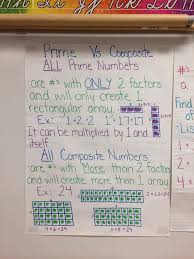 Prime Vs Composite
ALL Prime Numbers
are #s with ONLY 2 factors
and will only create 1
rectangular array.
Ex: 1·2=2 1·17=17
It can be multiplied by 1 and
itself.
All Composite Numbers
are #s with More than 2 factors
and will create more than 1 array.
Ex: 24
4×6=24
3×8=24